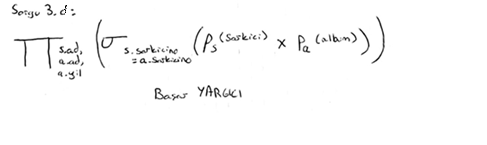 Sorgu 3.d:
∏ s.ad, a.ad, a.yil (σ s.sarkicino = a.sarkicino (ρs (sarkici) × ρa (album)))
Başar YARGICI